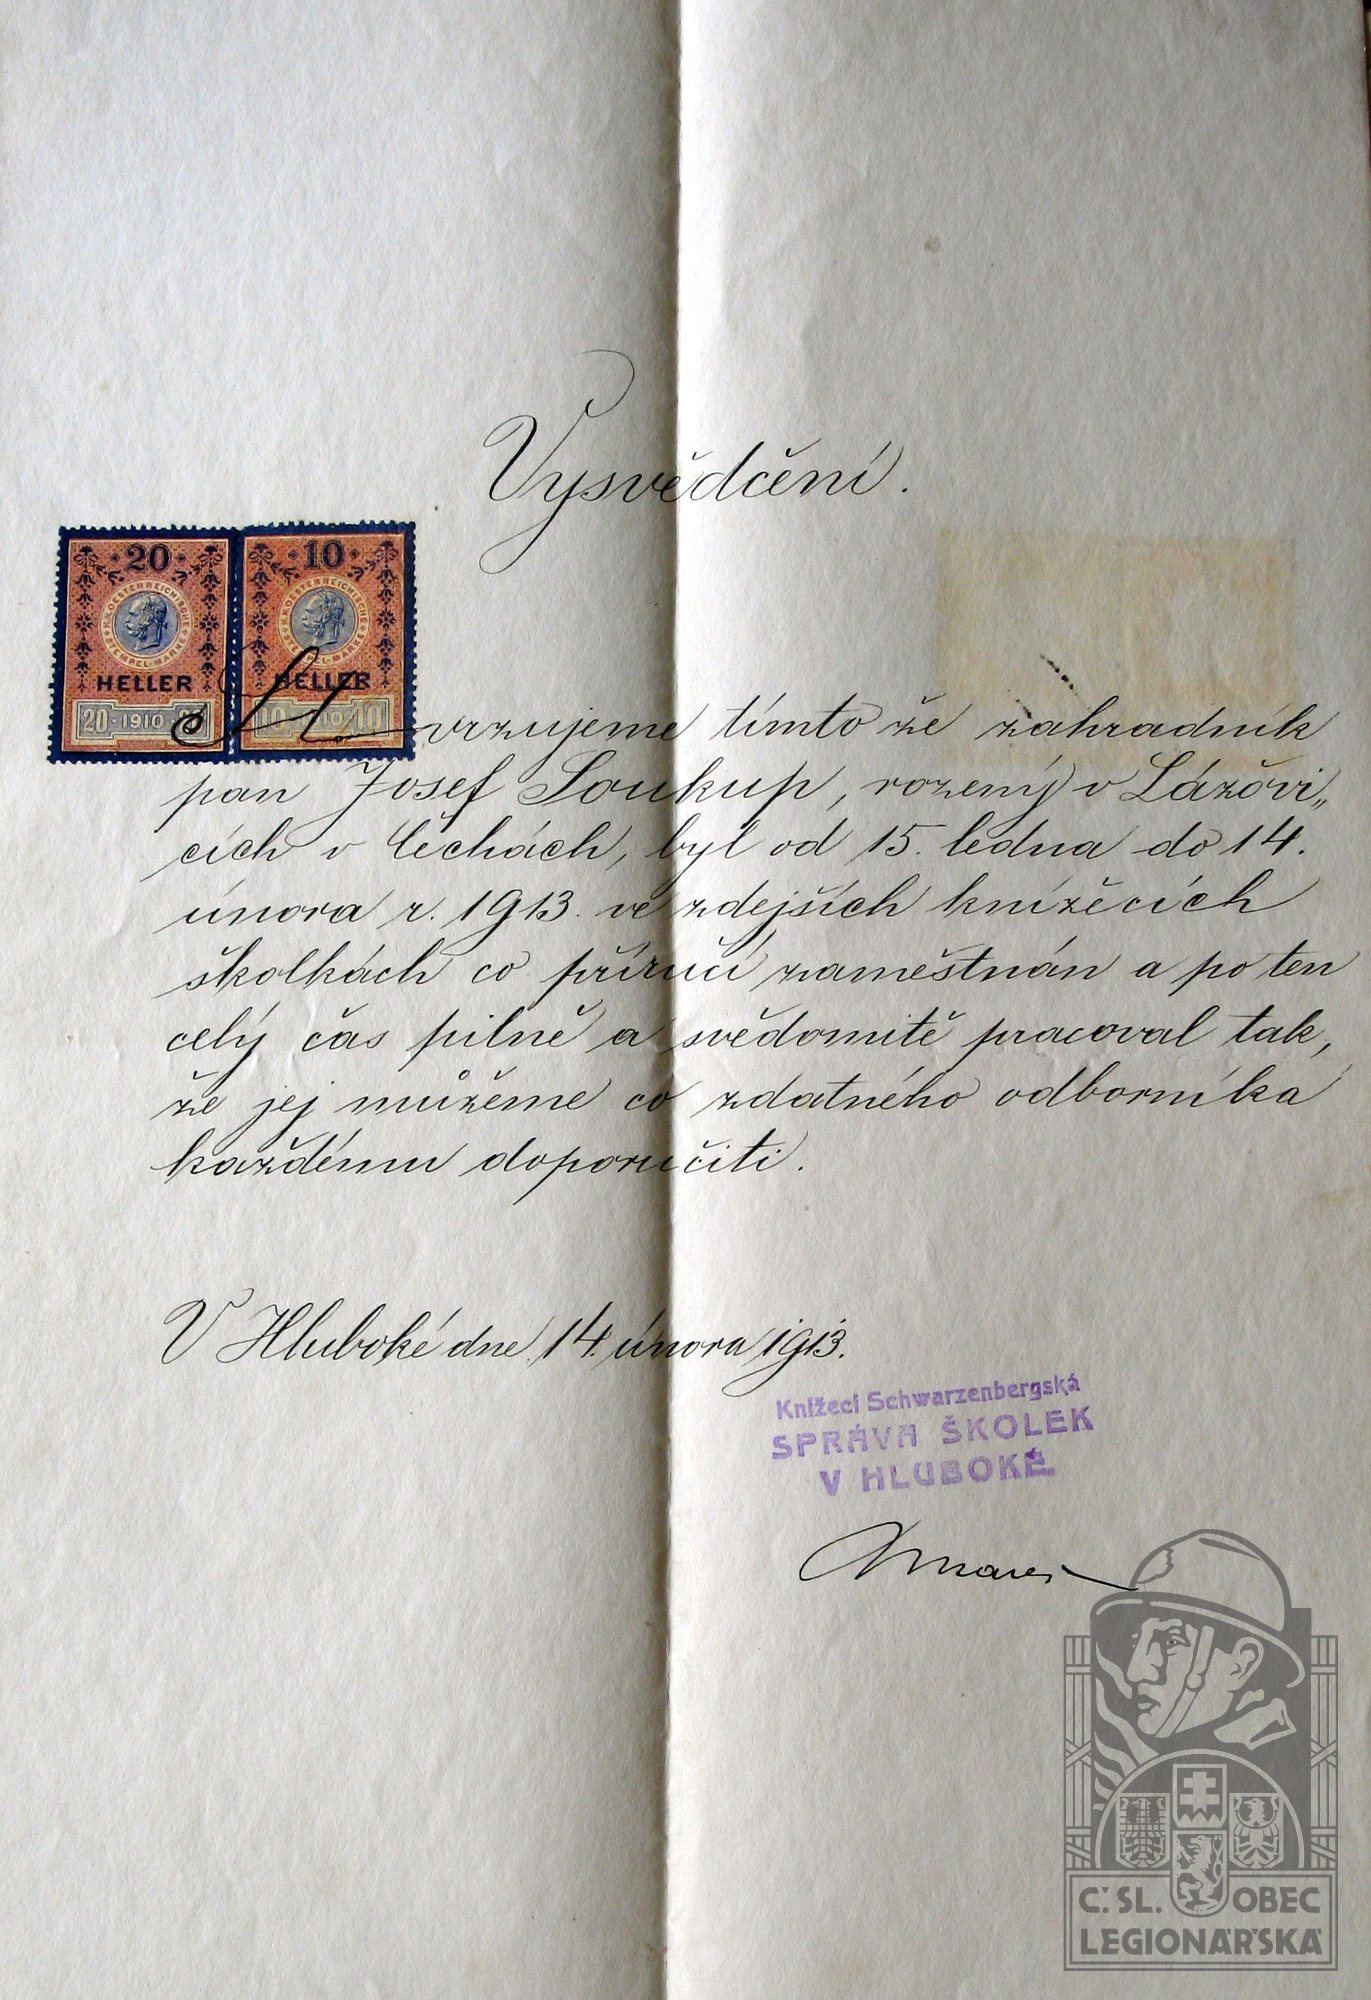 Vysvědčení.
20 10
K.K. OESTERREICHISCHE STEMPEL-MARKE K.K. OESTERREICHISCHE STEMPEL-MARKE
HELLER HELLER
20 1910 20 10 1910 10
Stvrzujeme tímto že zahradník
pan Josef Soukup, rozený v Lázóvi„
cích v Čechách, byl od 15. ledna do 14.
února r. 1913. ve zdejších knížecích
školkách co příručí zaměstnán a po ten
celý čas pilně a svědomitě pracoval tak,
že jej můžeme co zdatného odborníka
každému doporučiti.
V Hluboké dne 14. února 1913.
Knížecí Schwarzenbergská
SPRÁVA ŠKOLEK
V HLUBOKÉ.
Č. SL. OBEC
LEGIONÁŘSKÁ